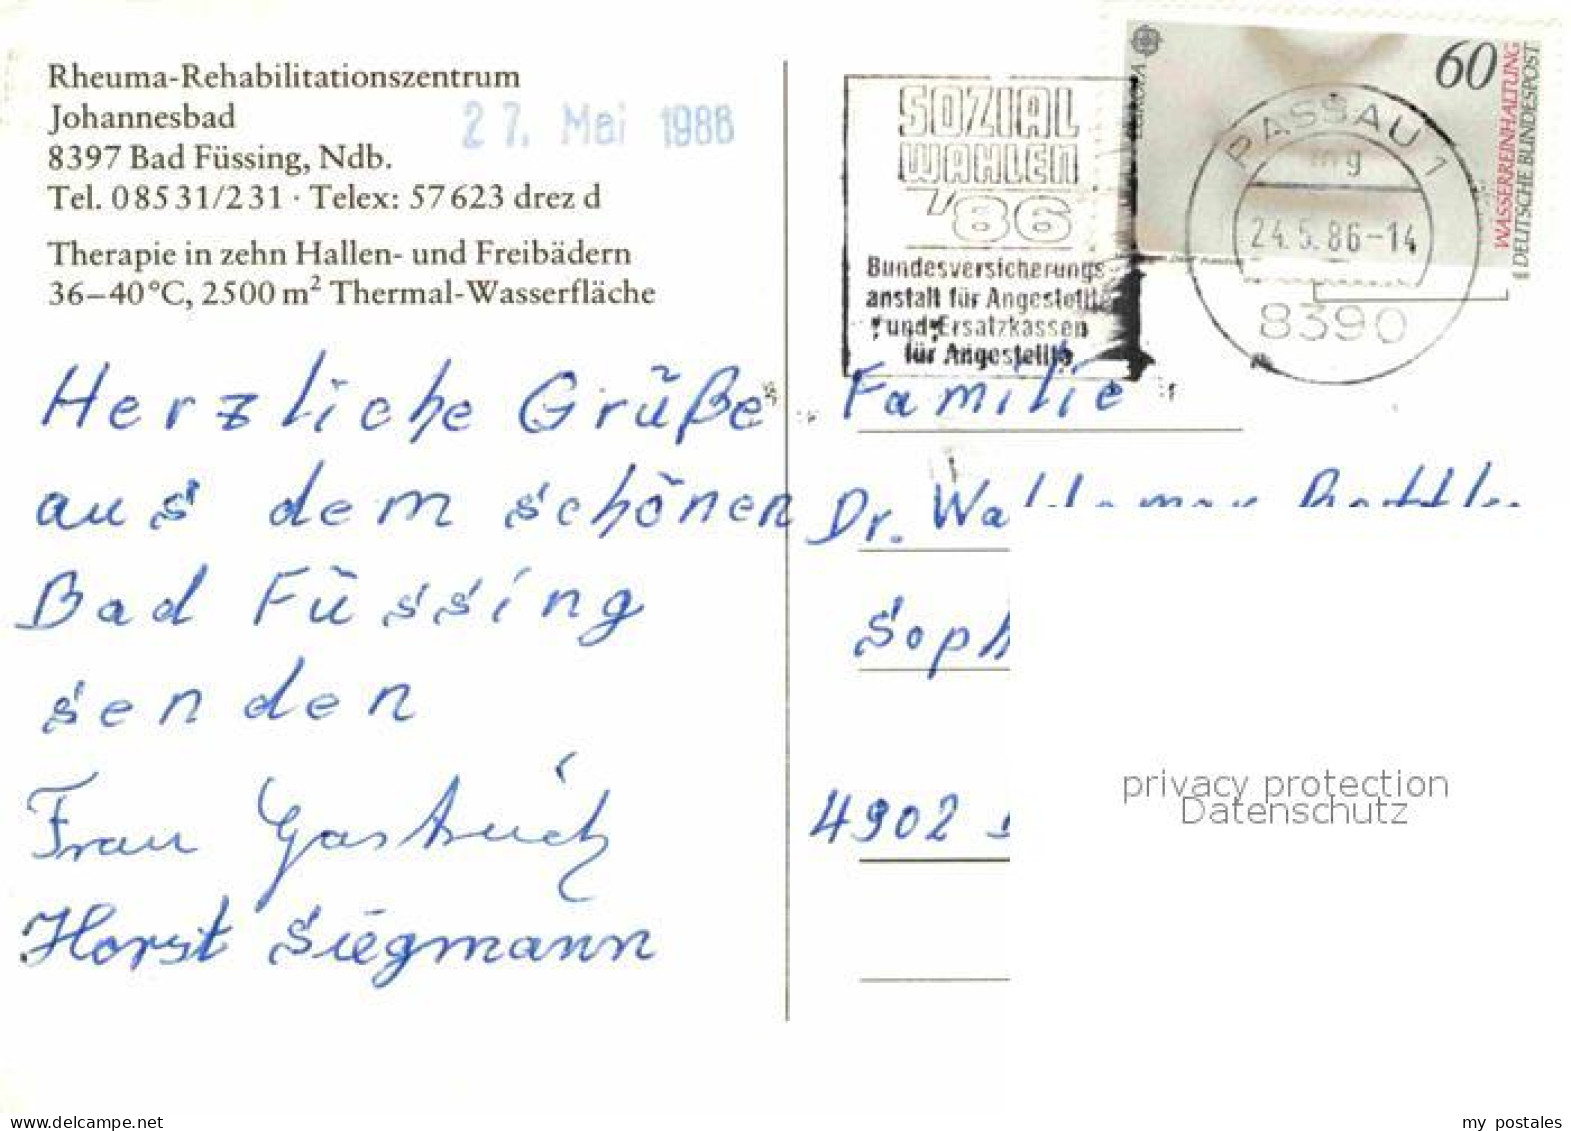 Rheuma-Rehabilitationszentrum
Johannesbad
8397 Bad Füssing, Ndb.
Tel. 08531/231 · Telex: 57623 drez d
27. Mai 1986
Therapie in zehn Hallen- und Freibädern
36–40°C, 2500 m² Thermal-Wasserfläche
Herzliche Grüße
aus dem schönen
Bad Füssing
senden
Frau
Horst Siegmann
SOZIAL
WAHLEN
'86
Bundesversicherungs
anstalt für Angestellte
und Ersatzkassen
für Angestellte
EUROPA
60
WASSERREINHALTUNG
DEUTSCHE BUNDESPOST
PASSAU 1
mg
24.5.86-14
8390
Familie
Dr. Waldemar
Soph
4902
privacy protection
Datenschutz
delcampe.net
my_postales